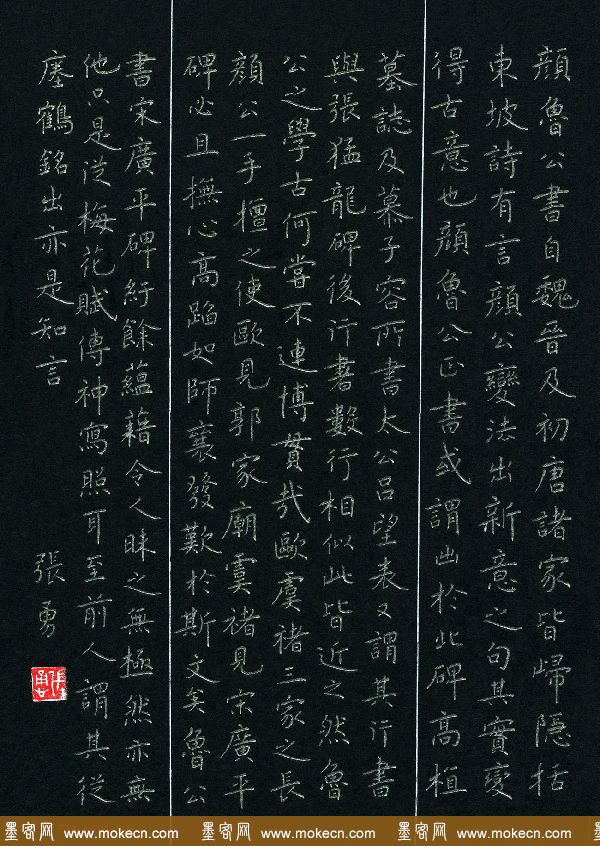 顏魯公書自魏晉及初唐諸家皆歸隱括
東坡詩有言顏公變法出新意之句其實變
得古意也顏魯公正書或謂出於此碑高植
墓誌及慕子容所書太公呂望表又謂其行書
與張猛龍碑後行書數行相似此皆近之然魯
公之學古何嘗不連博貫哉歐虞褚三家之長
顏公一手擅之使歐見郭家廟虞褚見宋廣平
碑必且撫心高蹈如師襄發歎於斯文矣魯公
書宋廣平碑紆餘蘊藉令人昧之無極然亦無
他只是從梅花賦傳神寫照耳至前人謂其從
塵鶴銘出亦是知言
張勇
張勇
墨客网 www.mokecn.com 墨客网 www.mokecn.com 墨客网 www.mokecn.com